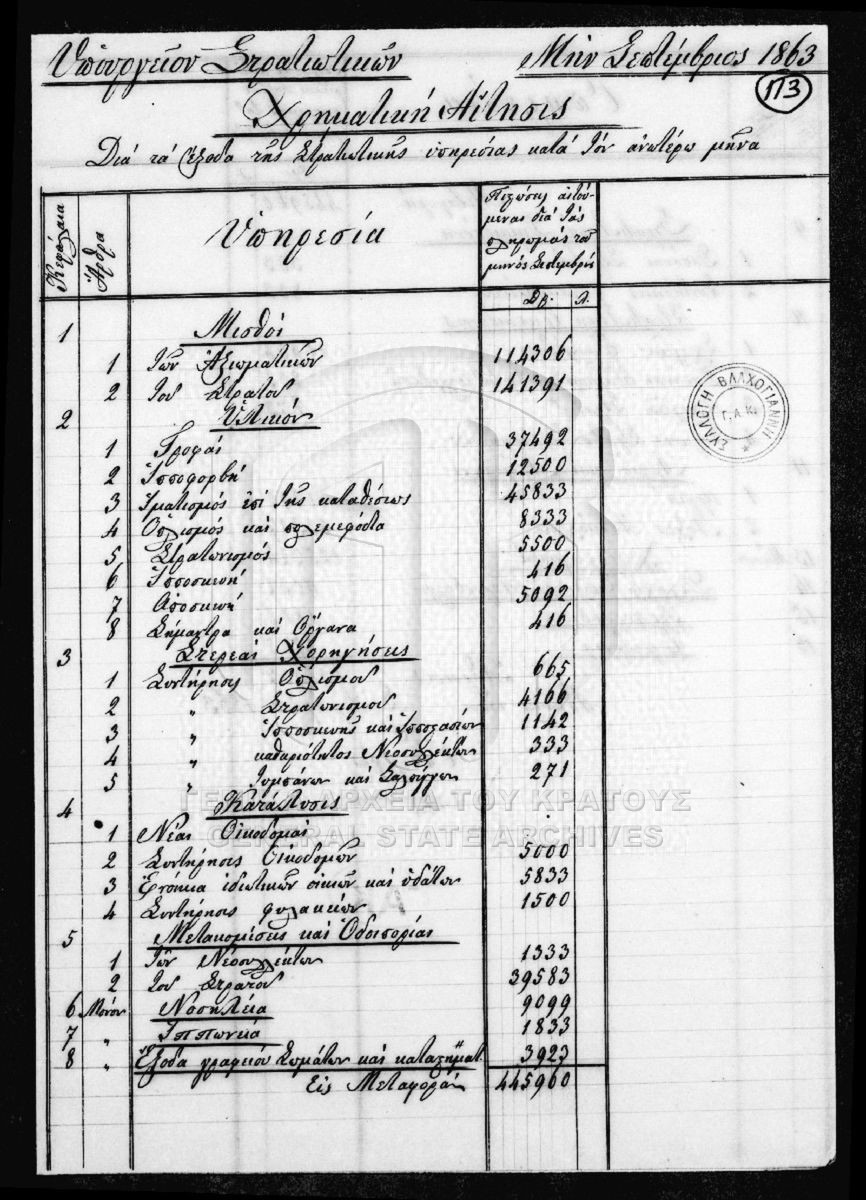 Υπουργείον Στρατιωτικών
Μην Σεπτέμβριος 1863
113
Χρηματική Αίτησις
Διά τα έξοδα της Στρατιωτικής υπηρεσίας κατά τον ανωτέρω μήνα
Κεφάλαια
Άρθρα
Υπηρεσία
Πιστώσεις αιτού-
μεναι διά τας
πληρωμάς του
μηνός Σεπτεμβρίου
Δρ. Λ.
1 Μισθοί
1 Των Αξιωματικών 114306
2 Του Στρατού 141391
2 Υλικόν
1 Τροφαί 37492
2 Ιπποφορβή 12500
3 Ιματισμός επί της καταθέσεως 45833
4 Οπλισμός και πολεμεφόδια 8333
5 Στρατωνισμός 5500
6 Ιπποσκευή 416
7 Αποσκευή 5092
8 Σήμαντρα και Όργανα 416
3 Στερεαί Χορηγήσεις
1 Συντήρησις Οπλισμού 665
2 " Στρατωνισμού 4166
3 " Ιπποσκευής και Ιπποστασίων 1142
4 " καθαριότητος Νεοσυλλέκτων 333
5 " Τυμπάνων και Σαλπίγγων 271
4 Κατάλυσις
1 Νέαι Οικοδομαί
2 Συντήρησις Οικοδομών 5000
3 Ενοίκια ιδιωτικών οικιών και υδάτων 5833
4 Συντήρησις φυλακείων 1500
5 Μετακομίσεις και Οδοιπορίαι
1 Των Νεοσυλλέκτων 1333
2 Του Στρατού 39583
6 Μόνον Νοσηλεία 9099
7 " Ιππωνεία 1833
8 " Έξοδα γραφείου Σωμάτων και καταστημάτ. 3923
Εις Μεταφοράν 445960
ΣΥΛΛΟΓΗ ΒΛΑΧΟΓΙΑΝΝΗ
Γ.Α.Κ.
ΓΕΝΙΚΑ ΑΡΧΕΙΑ ΤΟΥ ΚΡΑΤΟΥΣ
GENERAL STATE ARCHIVES